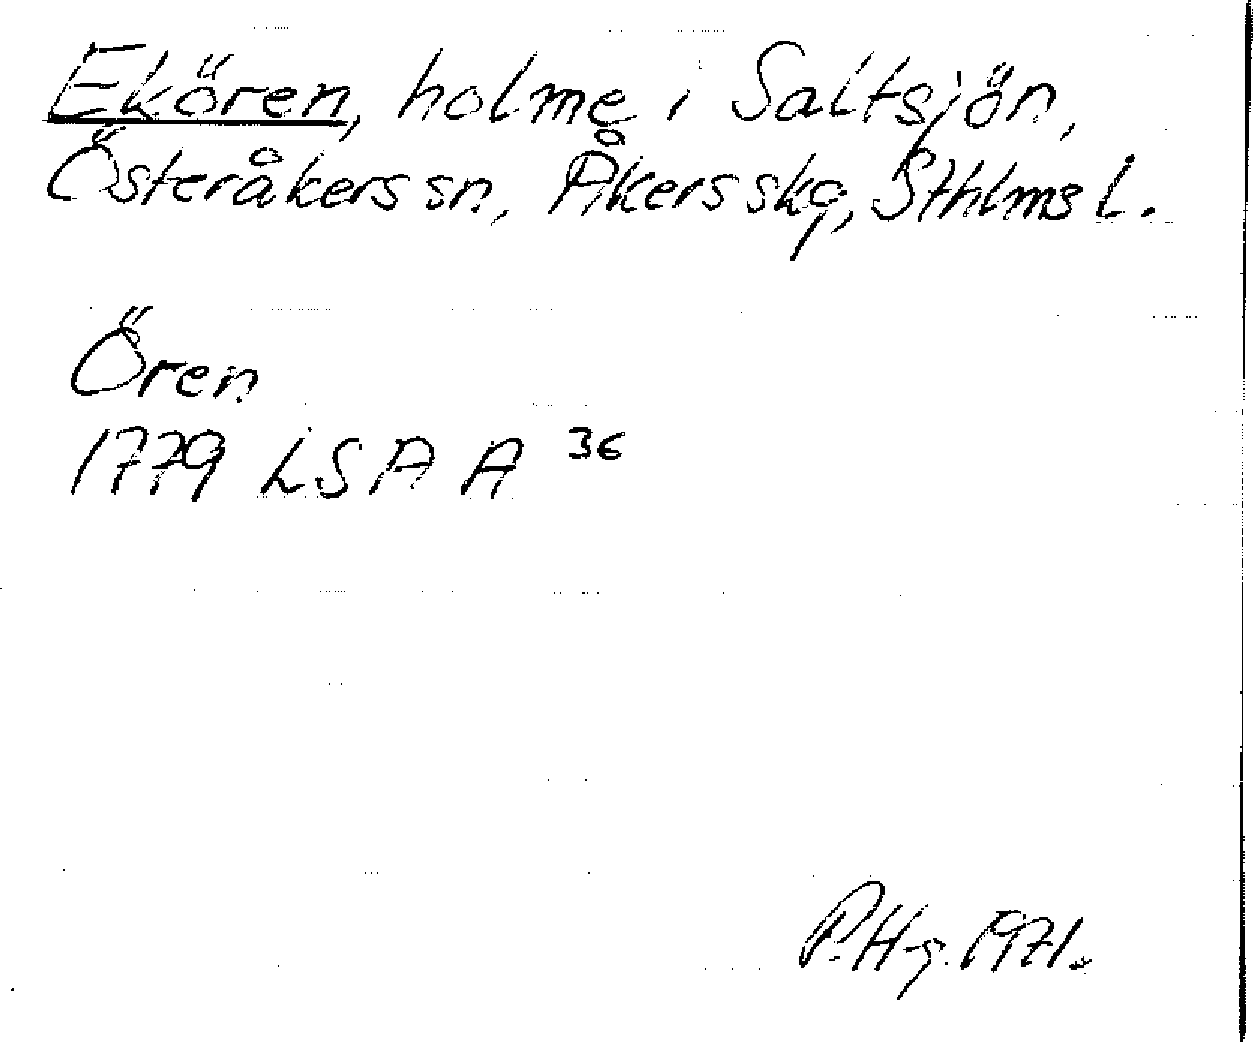 Ekören, holme i Saltsjön,
Österåkers sn, Åkers skg, Sthlms l.
Ören
1779 LSA A 36
P. H-g. 1971.